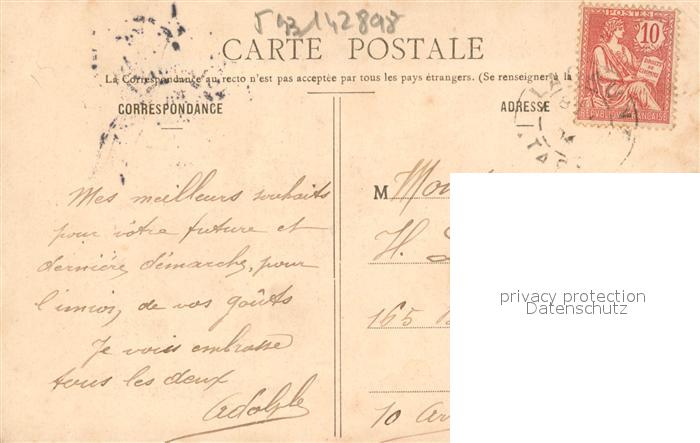 543142898
CARTE POSTALE
POSTES
10
REPUBLIQUE FRANCAISE
La Correspondance au recto n'est pas acceptée par tous les pays étrangers. (Se renseigner à la
CORRESPONDANCE
ADRESSE
Mes meilleurs souhaits
pour vôtre future et
dernière démarche, pour
l'union, de vos goûts
Je vous embrasse
tous les deux
Adolphe
M
H.
165
10 Ar
privacy protection
Datenschutz